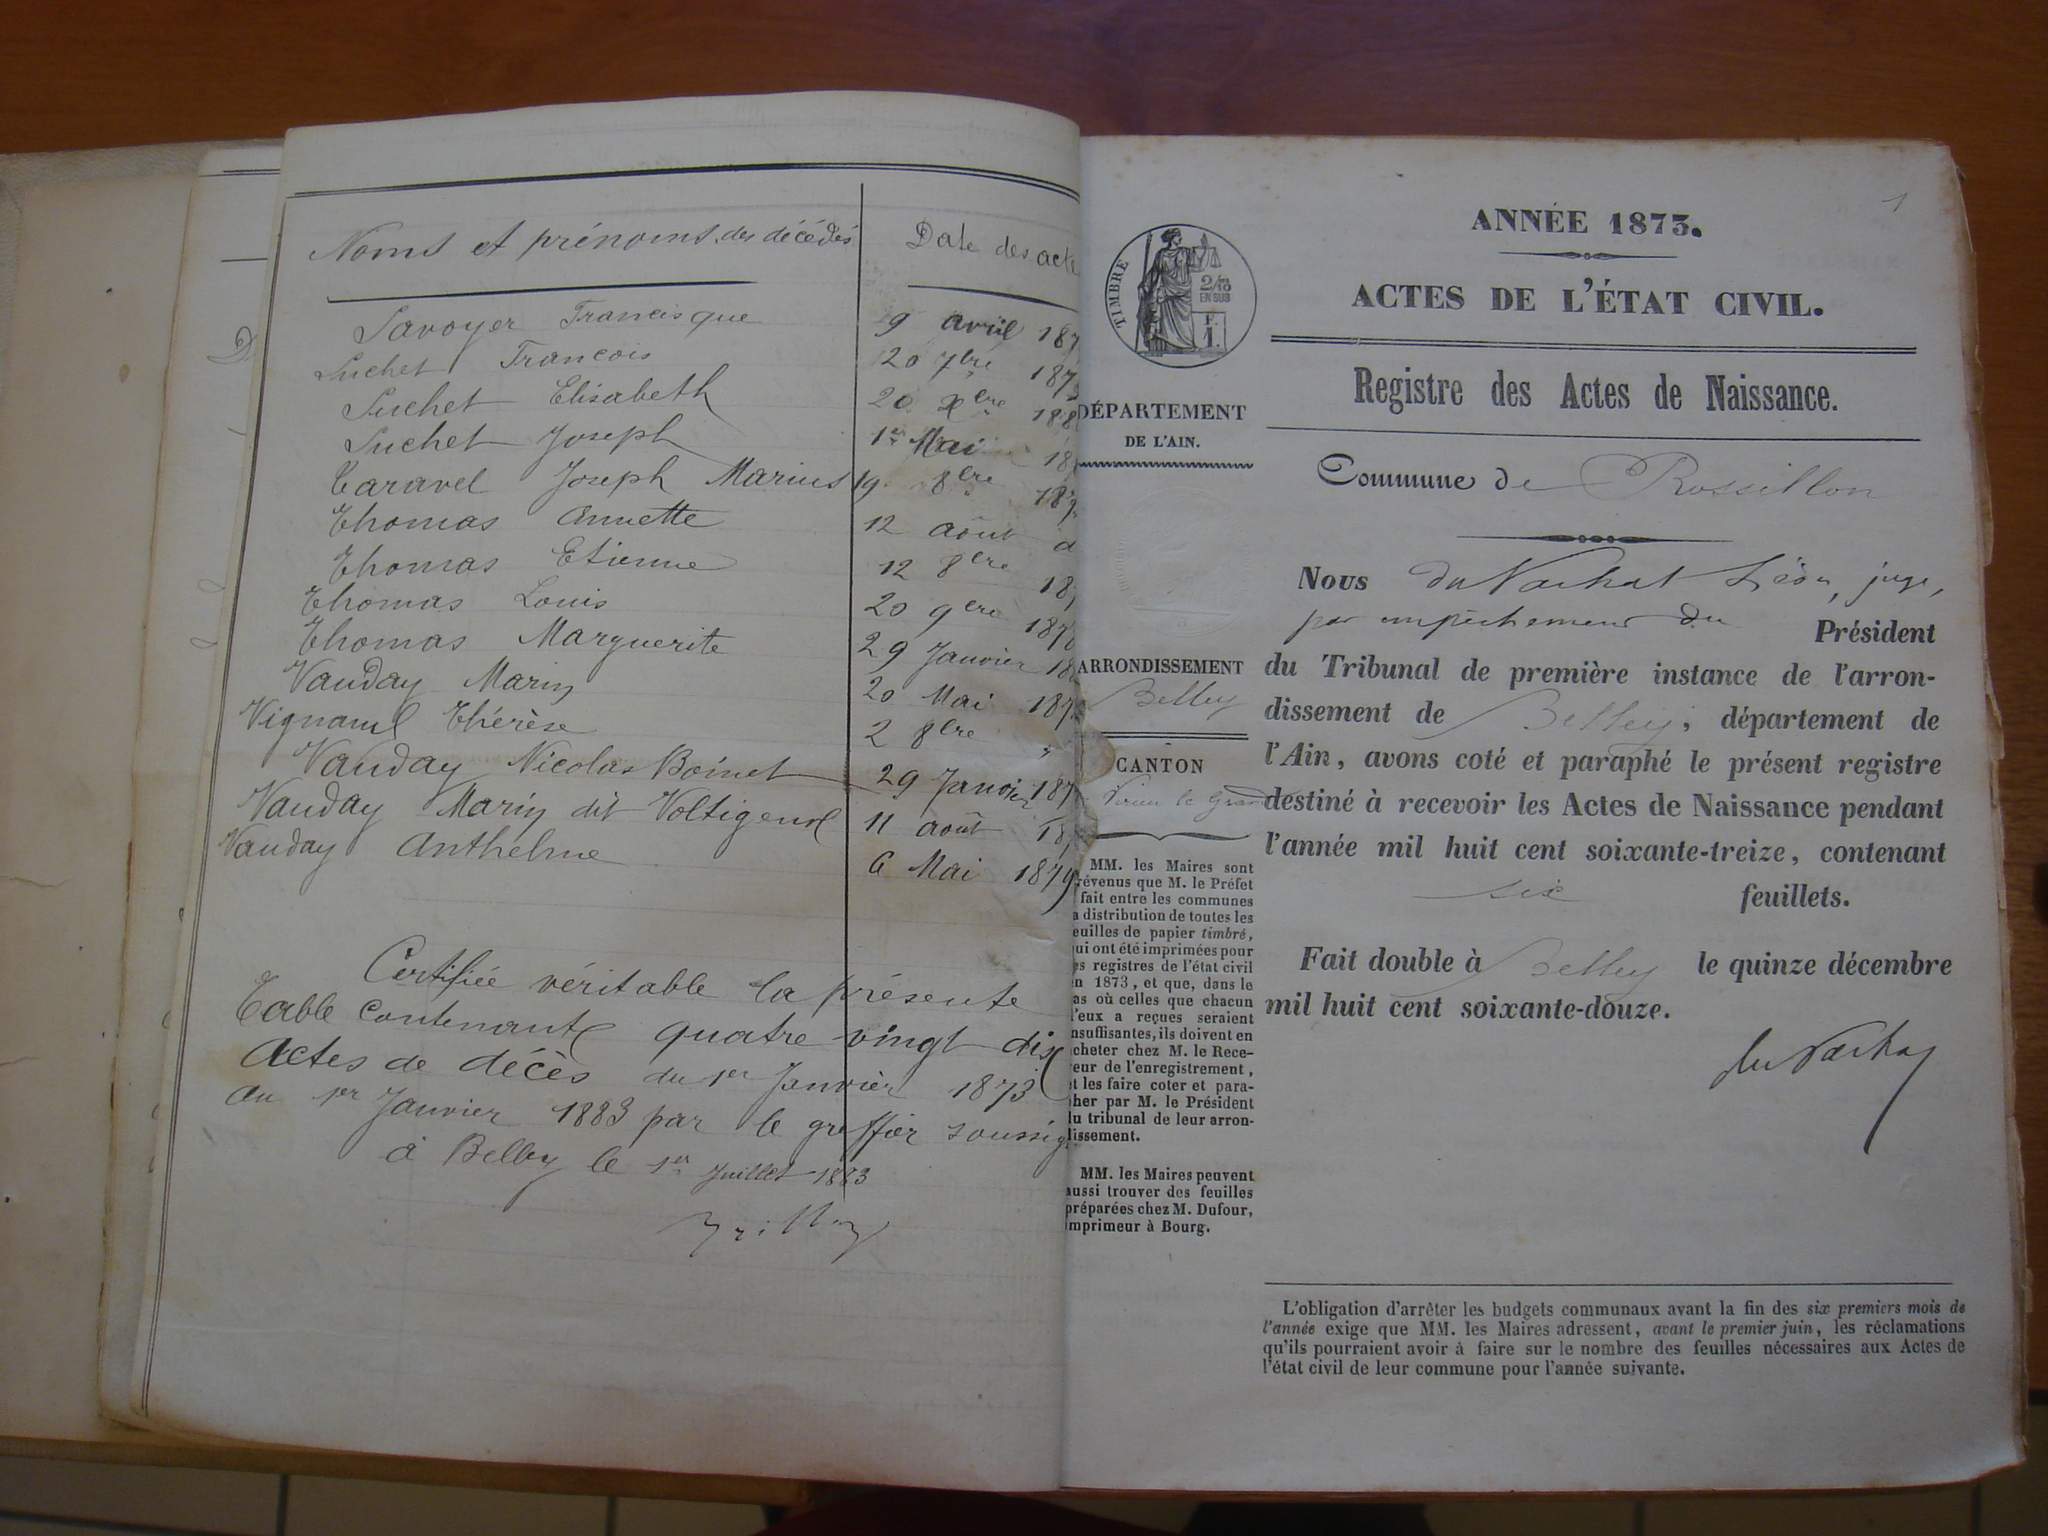 Noms et prénoms des décédés
Date des acte
Savoyer Francisque 9 avril 187
Suchet François 20 7bre 187
Suchet Elisabeth 20 Xbre 188
Suchet Joseph 1er Mai 18
Taravel Joseph Marius 19 8bre 187
Thomas Annette 12 août d
Thomas Etienne 12 8bre 18
Thomas Louis 20 9bre 187
Thomas Marguerite 29 Janvier 18
Vauday Marin 20 Mai 187
Vignand Thérèse 2 8bre "
Vauday Nicolas Boinet 29 Janvier 187
Vauday Marin dit Voltigeur 11 août 18
Vauday Anthelme 6 Mai 1879
Certifiée véritable la présente
Table contenant quatre vingt dix
Actes de décès du 1er Janvier 1873
au 1er Janvier 1883 par le greffier soussig
à Belley le 1er Juillet 1883
1
ANNÉE 1873.
ACTES DE L'ÉTAT CIVIL.
Registre des Actes de Naissance.
Commune de Rossillon
TIMBRE
2/10
EN SUS
F.
1.
DÉPARTEMENT
DE L'AIN.
ARRONDISSEMENT
Belley
CANTON
Virieu le Grand
MM. les Maires sont
révenus que M. le Préfet
fait entre les communes
a distribution de toutes les
euilles de papier timbré,
ui ont été imprimées pour
es registres de l'état civil
n 1873, et que, dans le
as où celles que chacun
'eux a reçues seraient
nsuffisantes, ils doivent en
cheter chez M. le Rece-
eur de l'enregistrement,
t les faire coter et para-
her par M. le Président
u tribunal de leur arron-
issement.
MM. les Maires peuvent
aussi trouver des feuilles
préparées chez M. Dufour,
mprimeur à Bourg.
Nous du Vachat Léon, juge,
par empêchement du Président
du Tribunal de première instance de l'arron-
dissement de Belley, département de
l'Ain, avons coté et paraphé le présent registre
destiné à recevoir les Actes de Naissance pendant
l'année mil huit cent soixante-treize, contenant
six feuillets.
Fait double à Belley le quinze décembre
mil huit cent soixante-douze.
du Vachat
L'obligation d'arrêter les budgets communaux avant la fin des six premiers mois de
l'année exige que MM. les Maires adressent, avant le premier juin, les réclamations
qu'ils pourraient avoir à faire sur le nombre des feuilles nécessaires aux Actes de
l'état civil de leur commune pour l'année suivante.